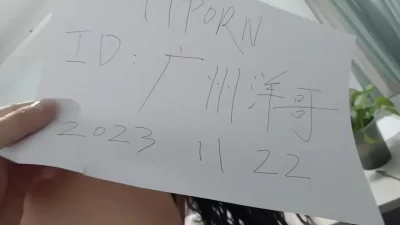 TTPORN
ID: 广州洋哥
2023 11 22